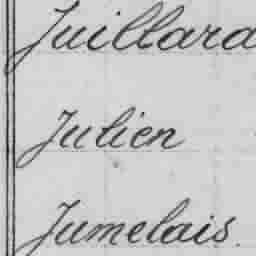 Juillard
Julien
Jumelais.